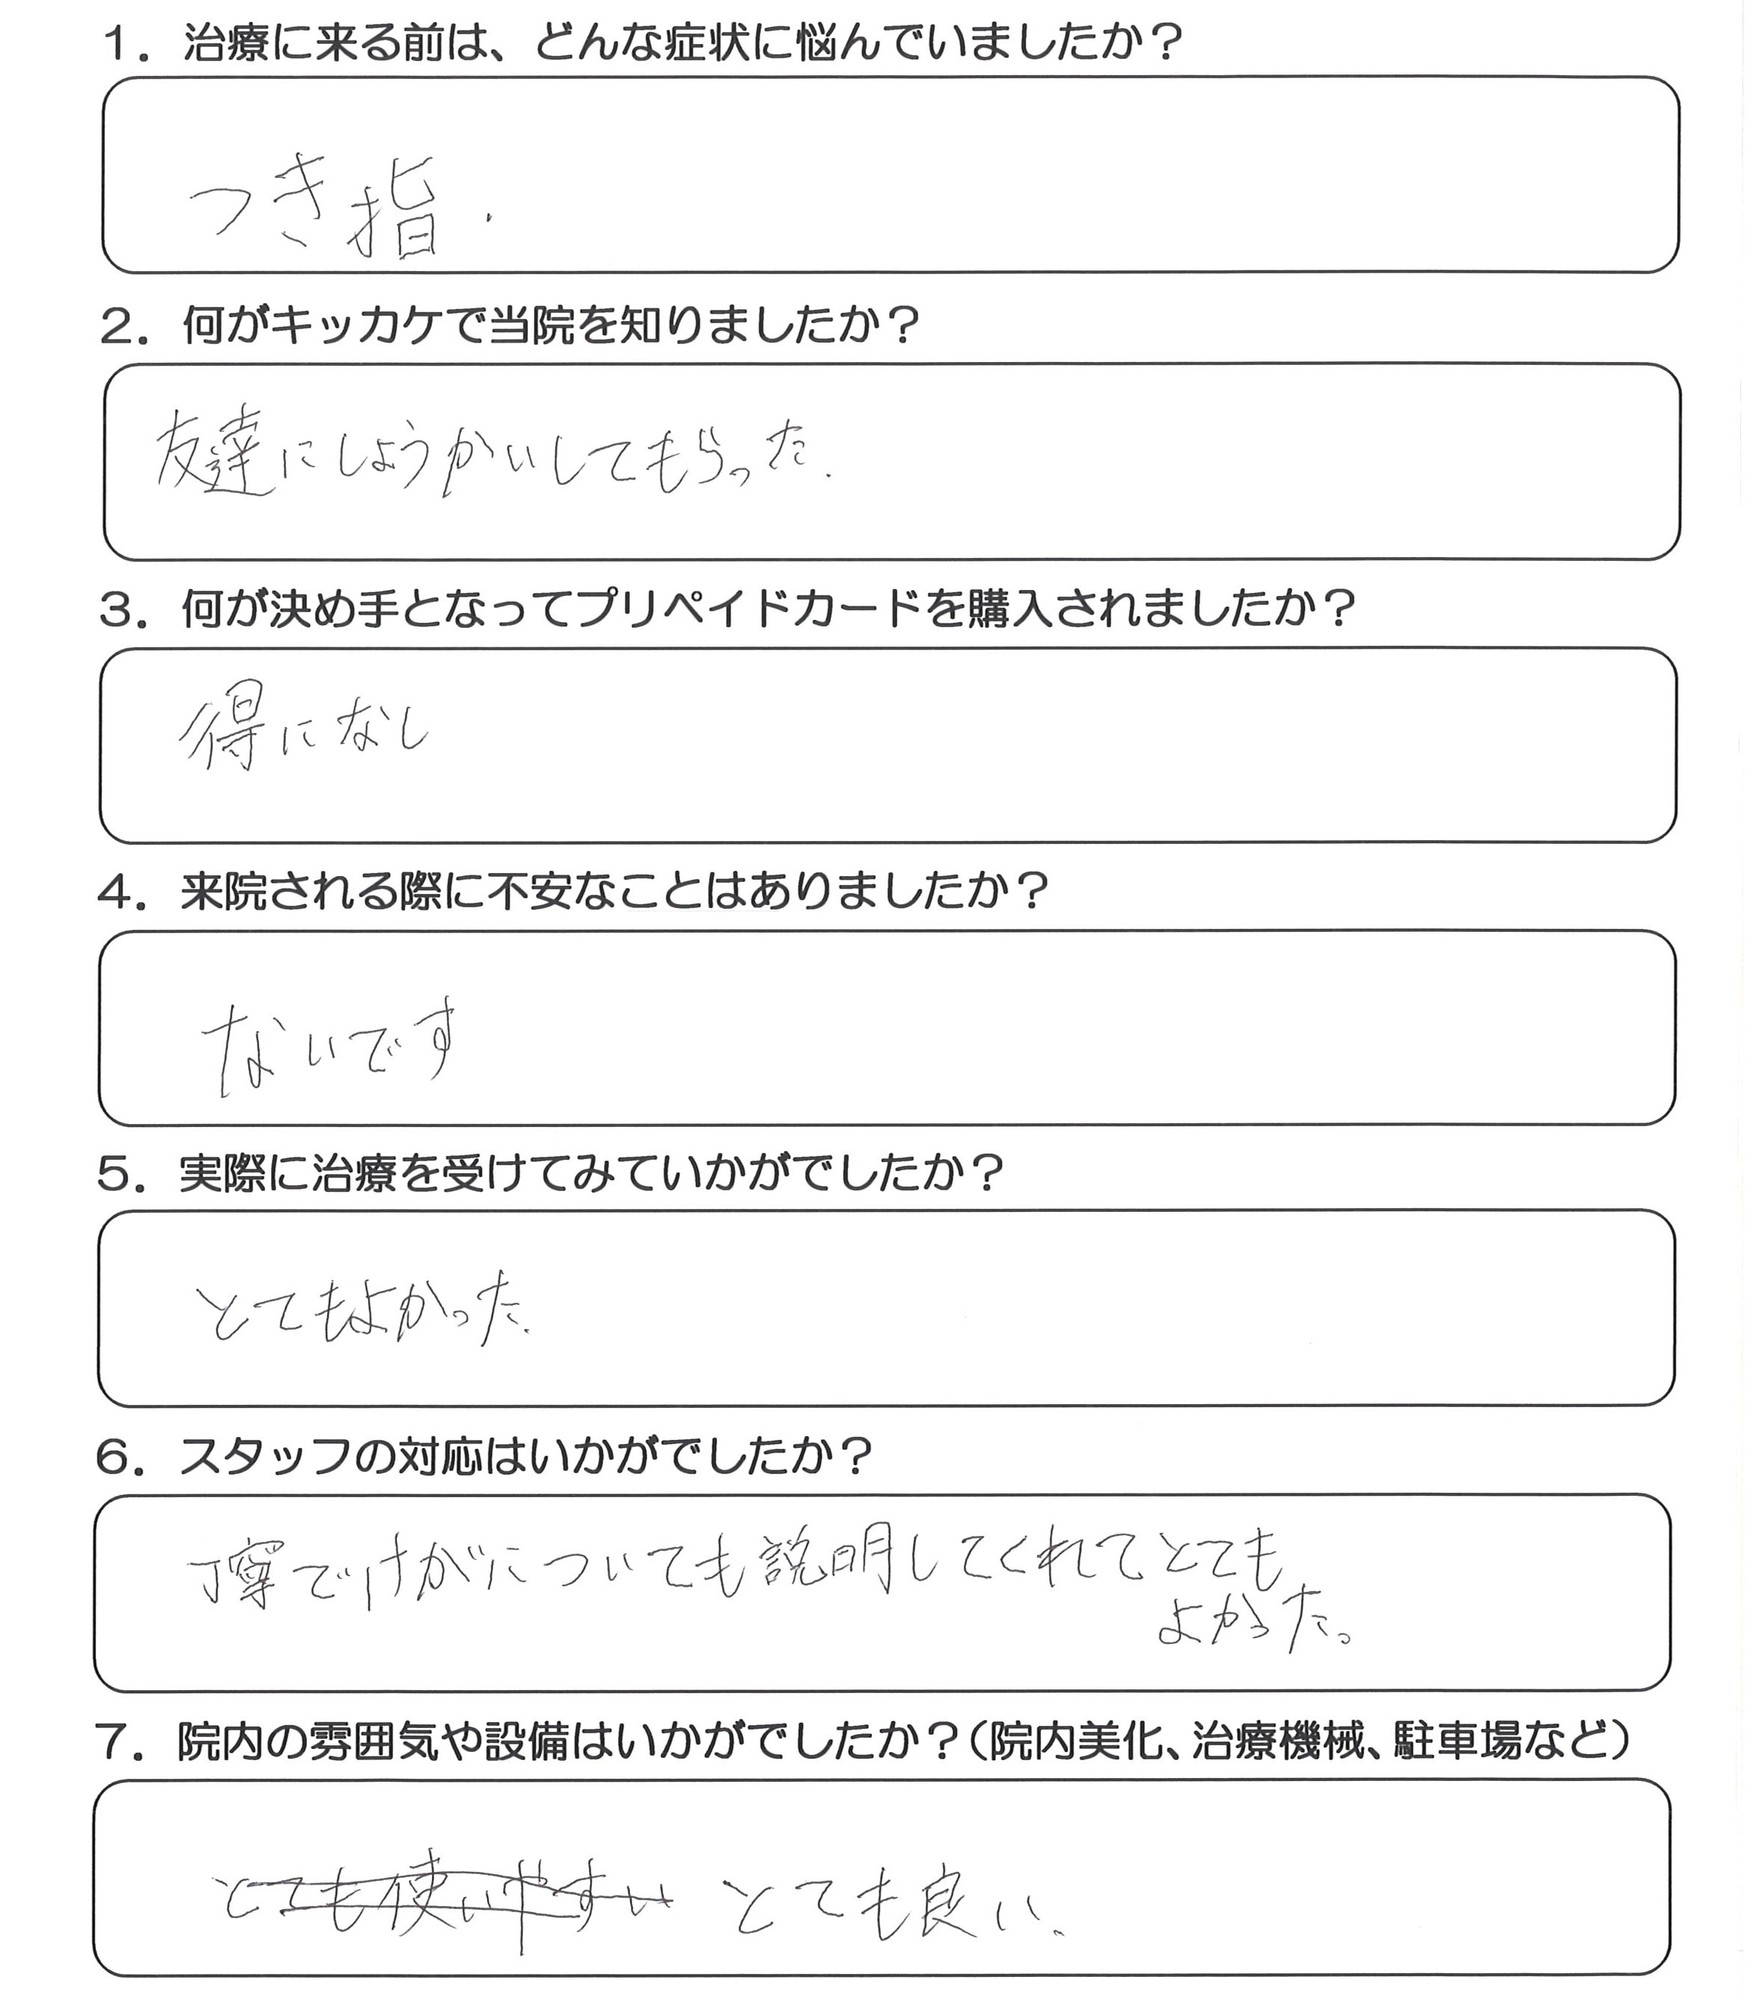 1. 治療に来る前は、どんな症状に悩んでいましたか？
つき指.
2. 何がキッカケで当院を知りましたか？
友達にしょうかいしてもらった.
3. 何が決め手となってプリペイドカードを購入されましたか？
得になし
4. 来院される際に不安なことはありましたか？
ないです
5. 実際に治療を受けてみていかがでしたか？
とてもよかった.
6. スタッフの対応はいかがでしたか？
丁寧でけがについても説明してくれてとても
よかった。
7. 院内の雰囲気や設備はいかがでしたか？（院内美化、治療機械、駐車場など）
とても使いやすい とても良い.